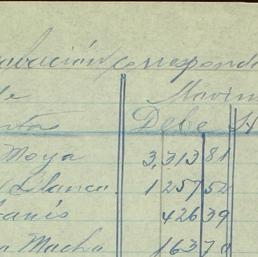 bación correspond
de Movim
ntas Debe H
Moya 3,313 81
Blanca. 1 257 52
anis 426 39
a Macha 163 70